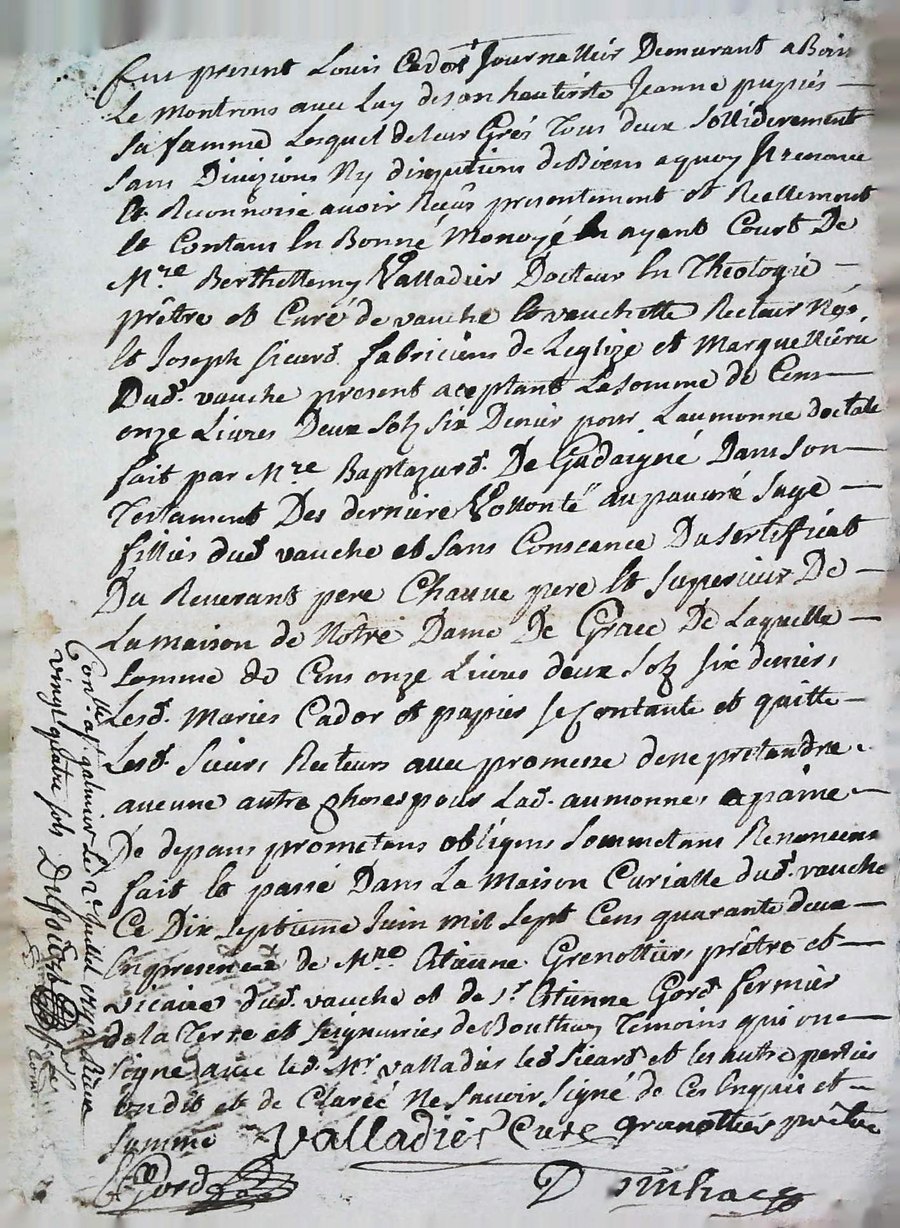 fut present Louis Cador Journallier Demurant a Bois
Le montrons avec Luy de son hautérité Jeanne pupiés
sa famme Lesquel de leur Grés Tous deux Sollidérement
sans Divizions Ny disqutions de Biens a quoy renonce
Et Reconnoise avoir Reeûs presentement et Reellement
Et Contans En Bonné Monoyé En ayant Court De
Mre Berthellemy Valladier Docteur En Theologié
prêtre et Curé de vauche Et vauchette Recteur
Et Joseph Sicard fabriciens de Leglize et Marguelliére
Dud. vauche present aceptant La somme de Cens
onze Livres Deux Solz Six Denier pour Laumonne doctale
fait par Mre Baptazard De Gadaigné Dans son
Testament Des derniere Vollonté au pauvré sage
fillies dud vauche et sans Conscance Du Sertifficat
Du Reverant pere Chauve pere Et Superieur De
La maison de Notré Dame De Grace De Laquelle
somme de Cens onze Livres deux Solz six deniers
Lesd. Mariés Cador et papiés se Contante et quitte
Lesd. Sieurs Recteurs avec promesse de ne pretandre
aucune autre Choses pour Lad. aumonne, a paine
De depans prometans obligens Sommetans Renoncens
fait Et passé Dans La Maison Curialle dud. vauche
Ce Dix septieme Juin mil sept Cens quarante deux
En presence de Mre Etienne Grenottier prêtre et
vicaire dud. vauche et de Sr. Etienne Gord fermier
de la Terre et seignuries de Bouthéon Temoins qui on
signe avec led. Mr. valladier led Sicard et les autre parties
on dit et de Claréé Ne savoir signé de Ces Enquis et
summé Valladier Curé granottier prêtre
Gord
Conllé a St galmier Le 2e Juillet 1742 Reçu
vingt quatre sols